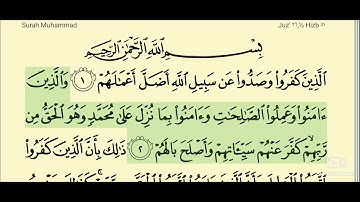 Surah Muhammad Juz' ٢٦, ½ Hizb ٥١
بِسْمِ اللَّهِ الرَّحْمَٰنِ الرَّحِيمِ
الَّذِينَ كَفَرُوا وَصَدُّوا عَن سَبِيلِ اللَّهِ أَضَلَّ أَعْمَٰلَهُمْ ١ وَالَّذِينَ
ءَامَنُوا وَعَمِلُوا الصَّٰلِحَٰتِ وَءَامَنُوا بِمَا نُزِّلَ عَلَىٰ مُحَمَّدٍ وَهُوَ الْحَقُّ مِن
رَّبِّهِمْ كَفَّرَ عَنْهُمْ سَيِّـَٔاتِهِمْ وَأَصْلَحَ بَالَهُمْ ٢ ذَٰلِكَ بِأَنَّ الَّذِينَ كَفَرُوا